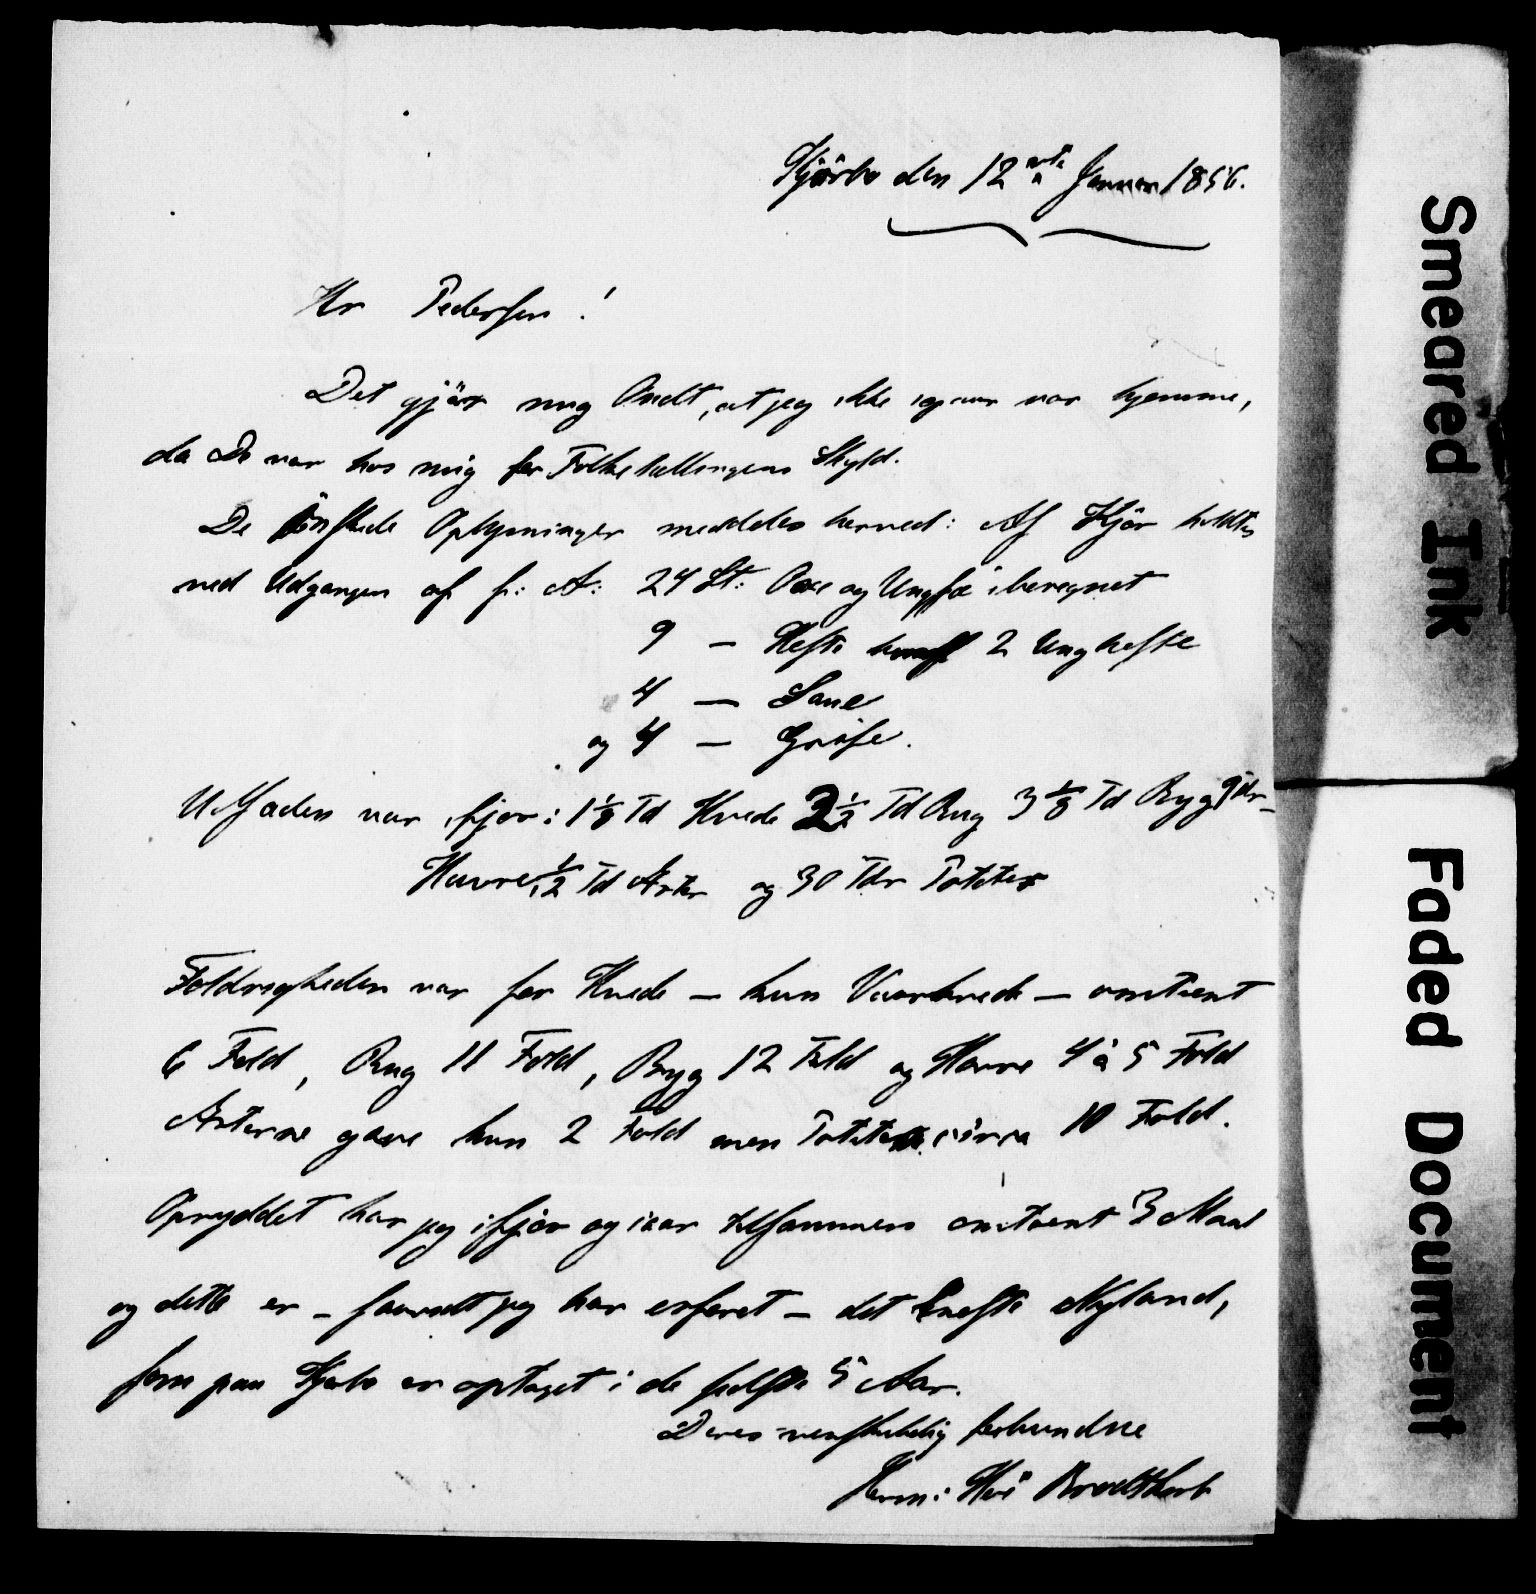 Kjörbo den 12 Januar 1856.
Hr Pedersen!
Det gjör mig Ondt, at jeg ikke igaar var hjemme,
da De var hos mig for Folketællingens Skyld.
De önskede Oplysninger meddeles herved: Af Kjör holdtes
ved Udgangen af f: A: 24 St: Oxe og Ungfæ iberegnet
9 — Heste 2 Ungheste
4 — Saue
og 4 — Griise.
Udsæden var ifjor: 1 1/8 Td Hvede 2 1/2 Td Rug 3 1/8 Td Byg
Havre 1/2 Td Ærter og 30 Tdr Poteter
Foldrigheden var for Hvede — kun Vaarhvede — omtrent
6 Fold, Rug 11 Fold, Byg 12 Fold og Havre 4 à 5 Fold
Ærterne gave kun 2 Fold men Poteter circa 10 Fold.
Opryddet har jeg ifjor og iaar tilsammen omtrent 3 Maal
og dette er — saavidt jeg har erfaret — det Eneste Nyland,
som paa Kjörbo er optaget i de sidste 5 Aar.
Deres venskabelig forbundne
Herm: